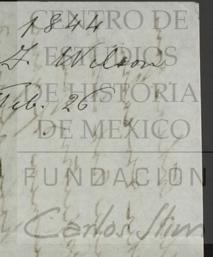 1844
CENTRO DE
ESTUDIOS
J. Wilson
DE HISTORIA
Feb. 26
DE MEXICO
FUNDACIÓN
Carlos Slim